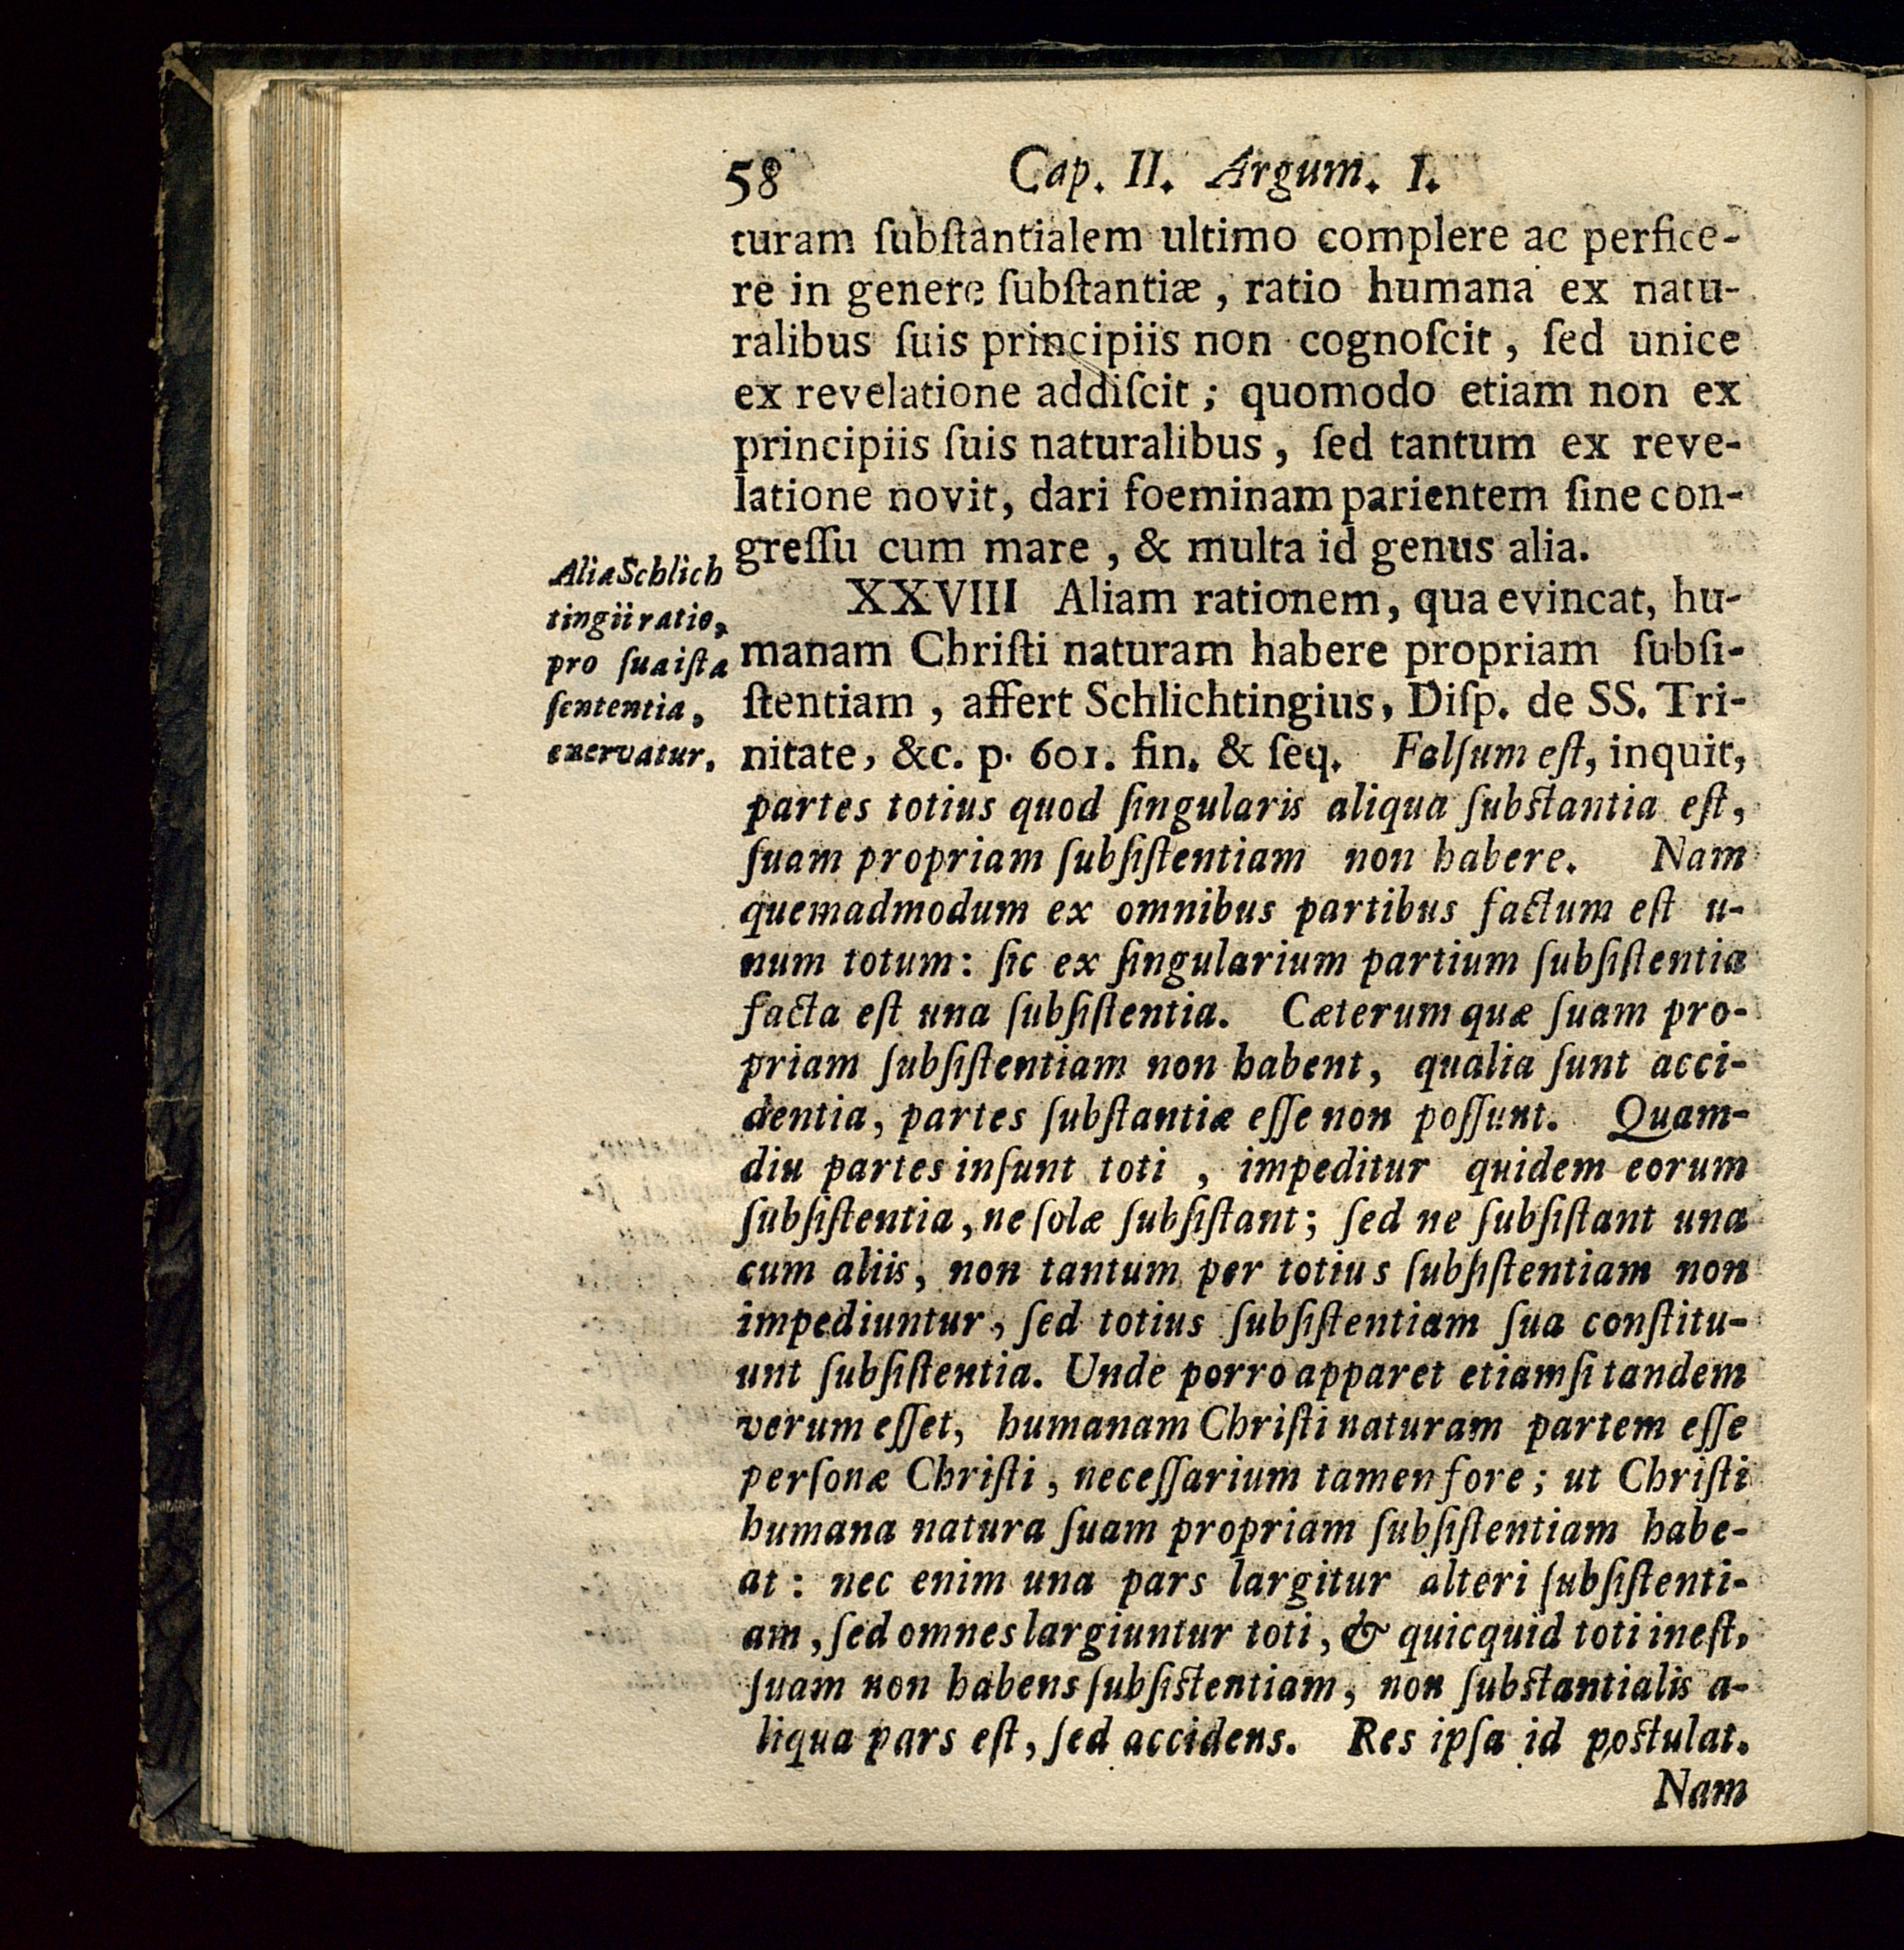 58 Cap. II. Argum. I.
turam ſubſtantialem ultimo complere ac perfice-
re in genere ſubſtantiæ, ratio humana ex natu-
ralibus ſuis principiis non cognoſcit, ſed unice
ex revelatione addiſcit; quomodo etiam non ex
principiis ſuis naturalibus, ſed tantum ex reve-
latione novit, dari foeminam parientem ſine con-
greſſu cum mare, & multa id genus alia.
Alia Schlich
tingii ratio,
pro ſua iſta
ſententia,
enervatur.
XXVIII Aliam rationem, qua evincat, hu-
manam Chriſti naturam habere propriam ſubſi-
ſtentiam, affert Schlichtingius, Diſp. de SS. Tri-
nitate, &c. p. 601. fin. & ſeq. Falſum eſt, inquit,
partes totius quod ſingularis aliqua ſubſtantia eſt,
ſuam propriam ſubſiſtentiam non habere. Nam
quemadmodum ex omnibus partibus factum eſt u-
num totum: ſic ex ſingularium partium ſubſiſtentia
facta eſt una ſubſiſtentia. Cæterum quæ ſuam pro-
priam ſubſiſtentiam non habent, qualia ſunt acci-
dentia, partes ſubſtantiæ eſſe non poſſunt. Quam-
diu partes inſunt toti, impeditur quidem eorum
ſubſiſtentia, ne ſolæ ſubſiſtant; ſed ne ſubſiſtant una
cum aliis, non tantum per totius ſubſiſtentiam non
impediuntur, ſed totius ſubſiſtentiam ſua conſtitu-
unt ſubſiſtentia. Unde porro apparet etiamſi tandem
verum eſſet, humanam Chriſti naturam partem eſſe
perſonæ Chriſti, neceſſarium tamen fore; ut Chriſti
humana natura ſuam propriam ſubſiſtentiam habe-
at: nec enim una pars largitur alteri ſubſiſtenti-
am, ſed omnes largiuntur toti, & quicquid toti ineſt,
ſuam non habens ſubſiſtentiam, non ſubſtantialis a-
liqua pars eſt, ſed accidens. Res ipſa id poſtulat.
Nam